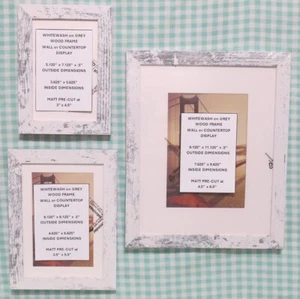 WHITEWASH on GREY
WOOD FRAME
WALL or COUNTERTOP
DISPLAY
5.125" x 7.125" x .5"
OUTSIDE DIMENSIONS
3.625" x 5.625"
INSIDE DIMENSIONS
MATT PRE-CUT at
WHITEWASH on GREY
WOOD FRAME
WALL or COUNTERTOP
DISPLAY
9.125" x 11.125" x .5"
OUTSIDE DIMENSIONS
7.625" x 9.625"
INSIDE DIMENSIONS
MATT PRE-CUT at
WHITEWASH on GREY
WOOD FRAME
WALL or COUNTERTOP
DISPLAY
6.125" x 8.125" x .5"
OUTSIDE DIMENSIONS
4.625" x 6.625"
INSIDE DIMENSIONS
MATT PRE-CUT at